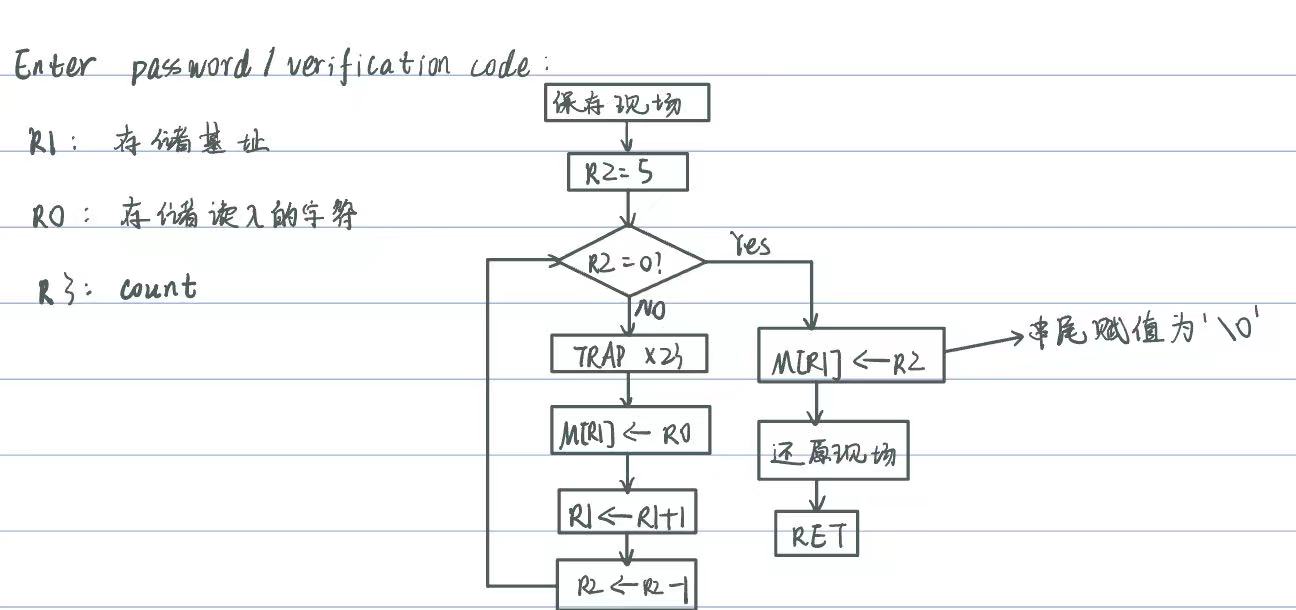 Enter password / verification code :
R1 : 存储基址
R0 : 存储读入的字符
R3 : count
保存现场
R2=5
R2=0?
Yes
NO
TRAP x23
M[R1] ← R0
R1 ← R1+1
R2 ← R2-1
M[R1] ← R2
串尾赋值为'\0'
还原现场
RET